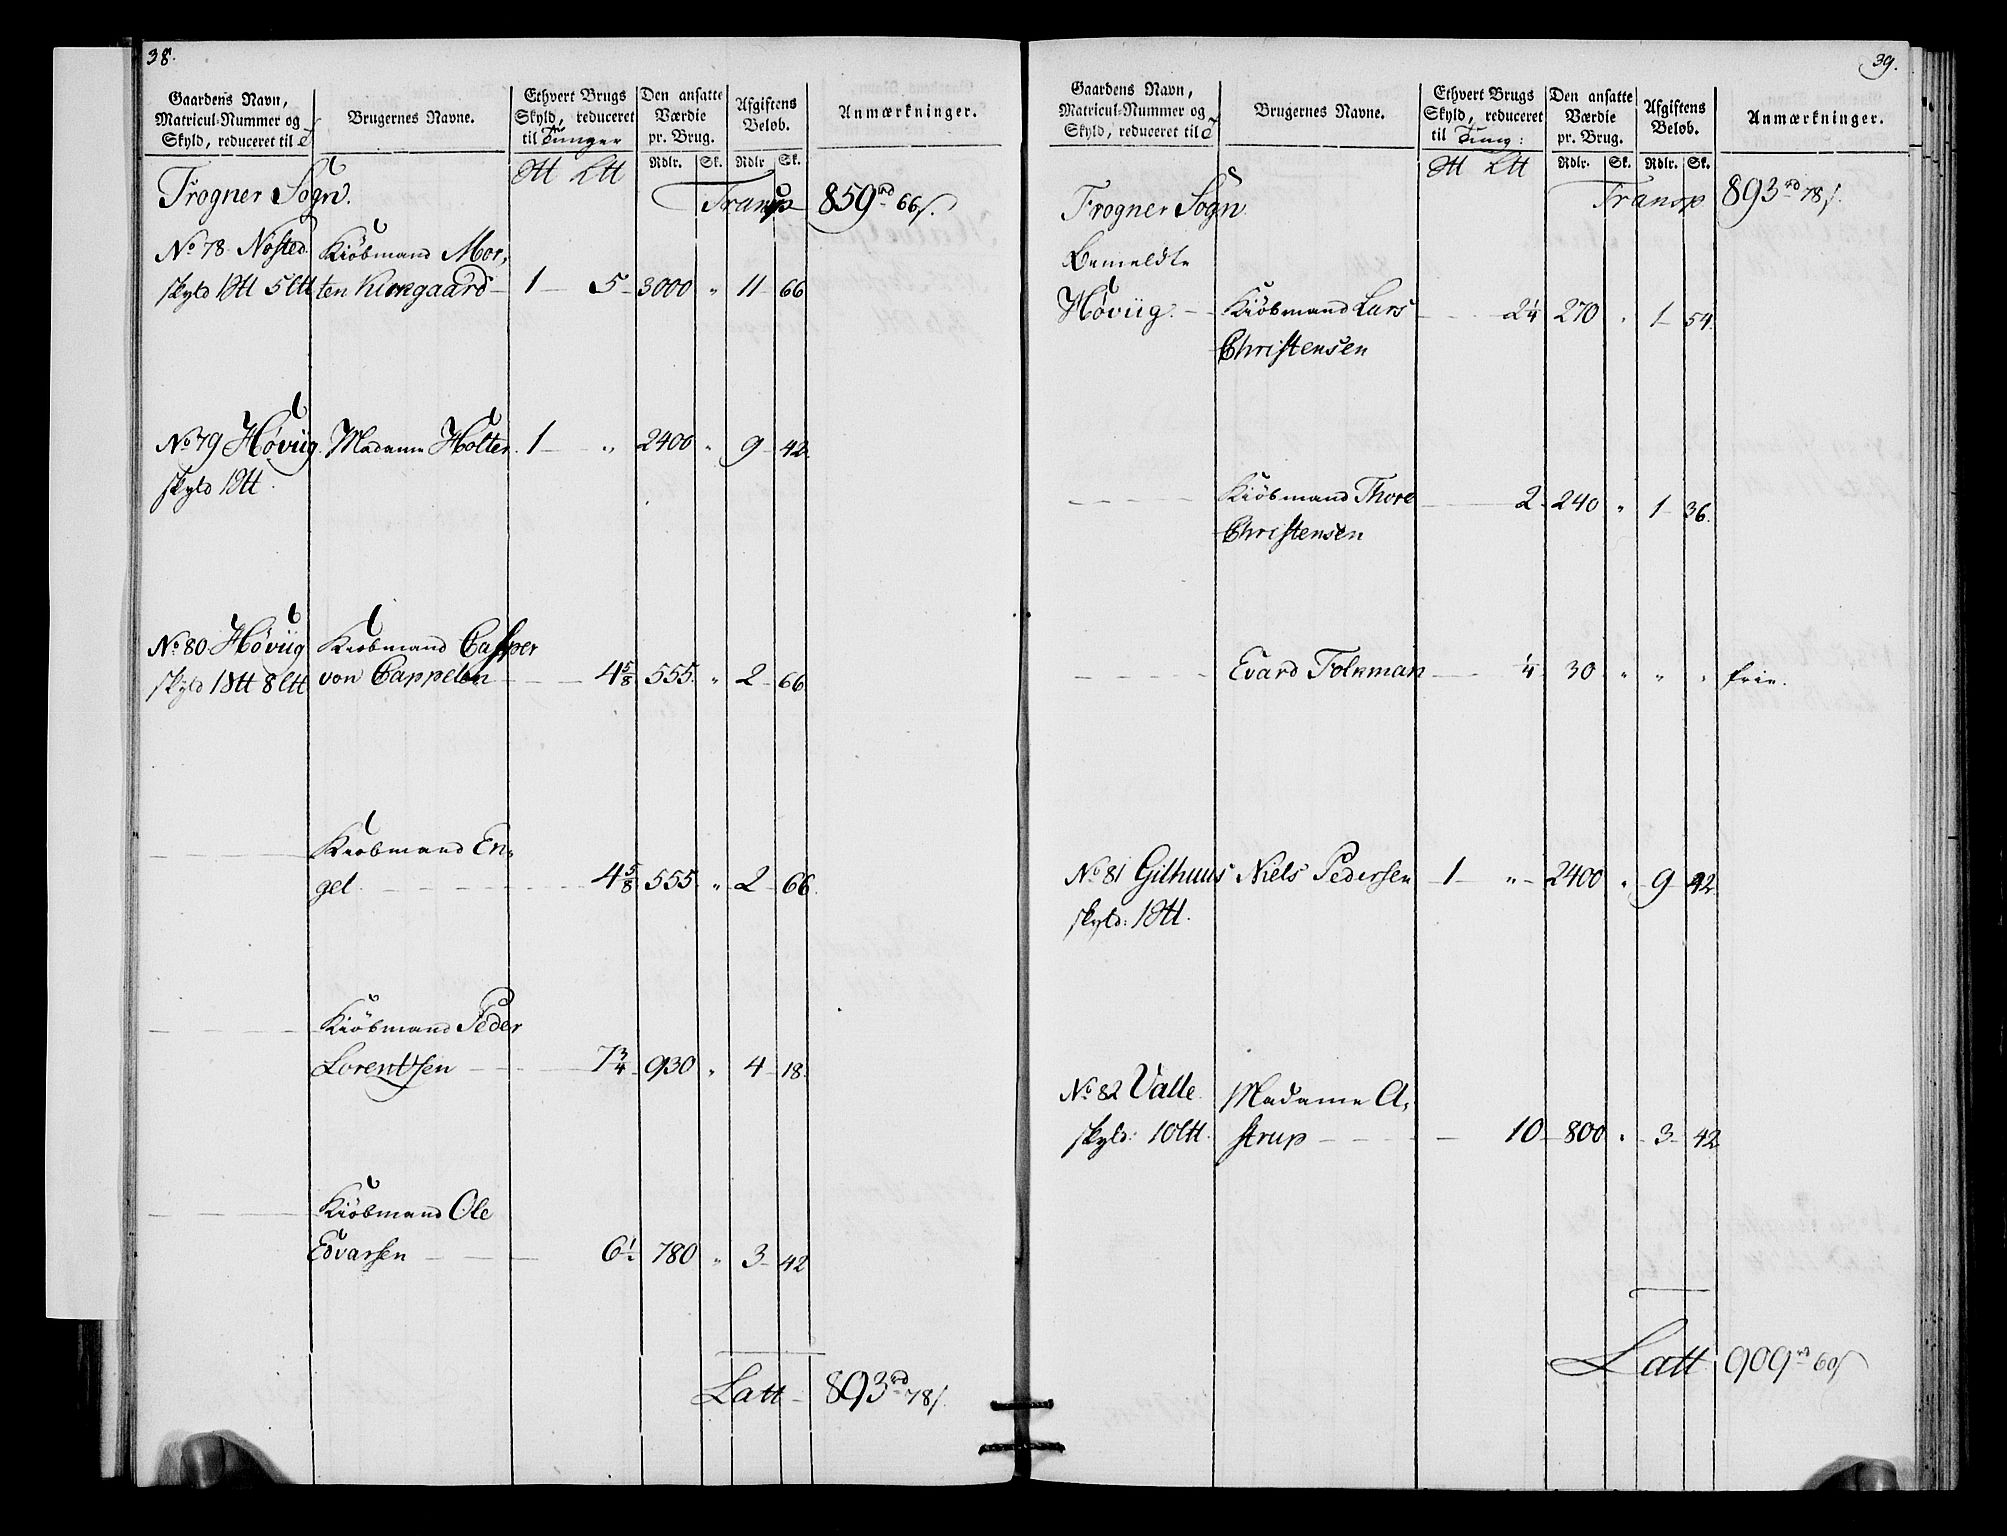 38.
Gaardens Navn, Matricul-Nummer og Skyld, reduceret til
Brugernes Navne.
Ethvert Brugs Skyld, reduceret til Tunger
Den ansatte Værdie pr. Brug.
Afgiftens Beløb.
Anmærkninger.
Rdlr. Sk. Rdlr. Sk.
Frogner Sogn. Transp 859 rd 66 s.
No 78 Nøsted Kiøbmand Mor-
skyld 1 5 ten Kirkgaard 1 5 3000 " 11 66
No 79 Høvüg Madame Holter 1 " 2400 " 9 42
skyld 1
No 80 Høvüg Kiøbmand Casper
skyld 1 8 von Cappelen 4 5/8 555 " 2 66
Kiøbmand En-
gel 4 5/8 555 " 2 66
Kiøbmand Peder
Lorentsen 7 3/4 930 " 4 18
Kiøbmand Ole
Edvarsen 6 1/2 780 " 3 42
Latt 893 rd 78 s.
39.
Gaardens Navn, Matricul-Nummer og Skyld, reduceret til
Brugernes Navne.
Ethvert Brugs Skyld, reduceret til Tung:
Den ansatte Værdie pr. Brug.
Afgiftens Beløb.
Anmærkninger.
Rdlr. Sk. Rdlr. Sk.
Frogner Sogn Transp 893 rd 78 s.
Bemeldte
Høvüg Kiøbmand Lars 2 1/4 270 " 1 54
Christensen
Kiøbmand Thore 2 240 " 1 36
Christensen
Evard Folkman 1/4 30 " " " frie.
No 81 Gilhuus Niels Pedersen 1 " 2400 " 9 42
skyld: 1
No 82 Valle Madame A-
skyld: 10 strup 10 800 " 3 42
Latt 909 rd 60 s